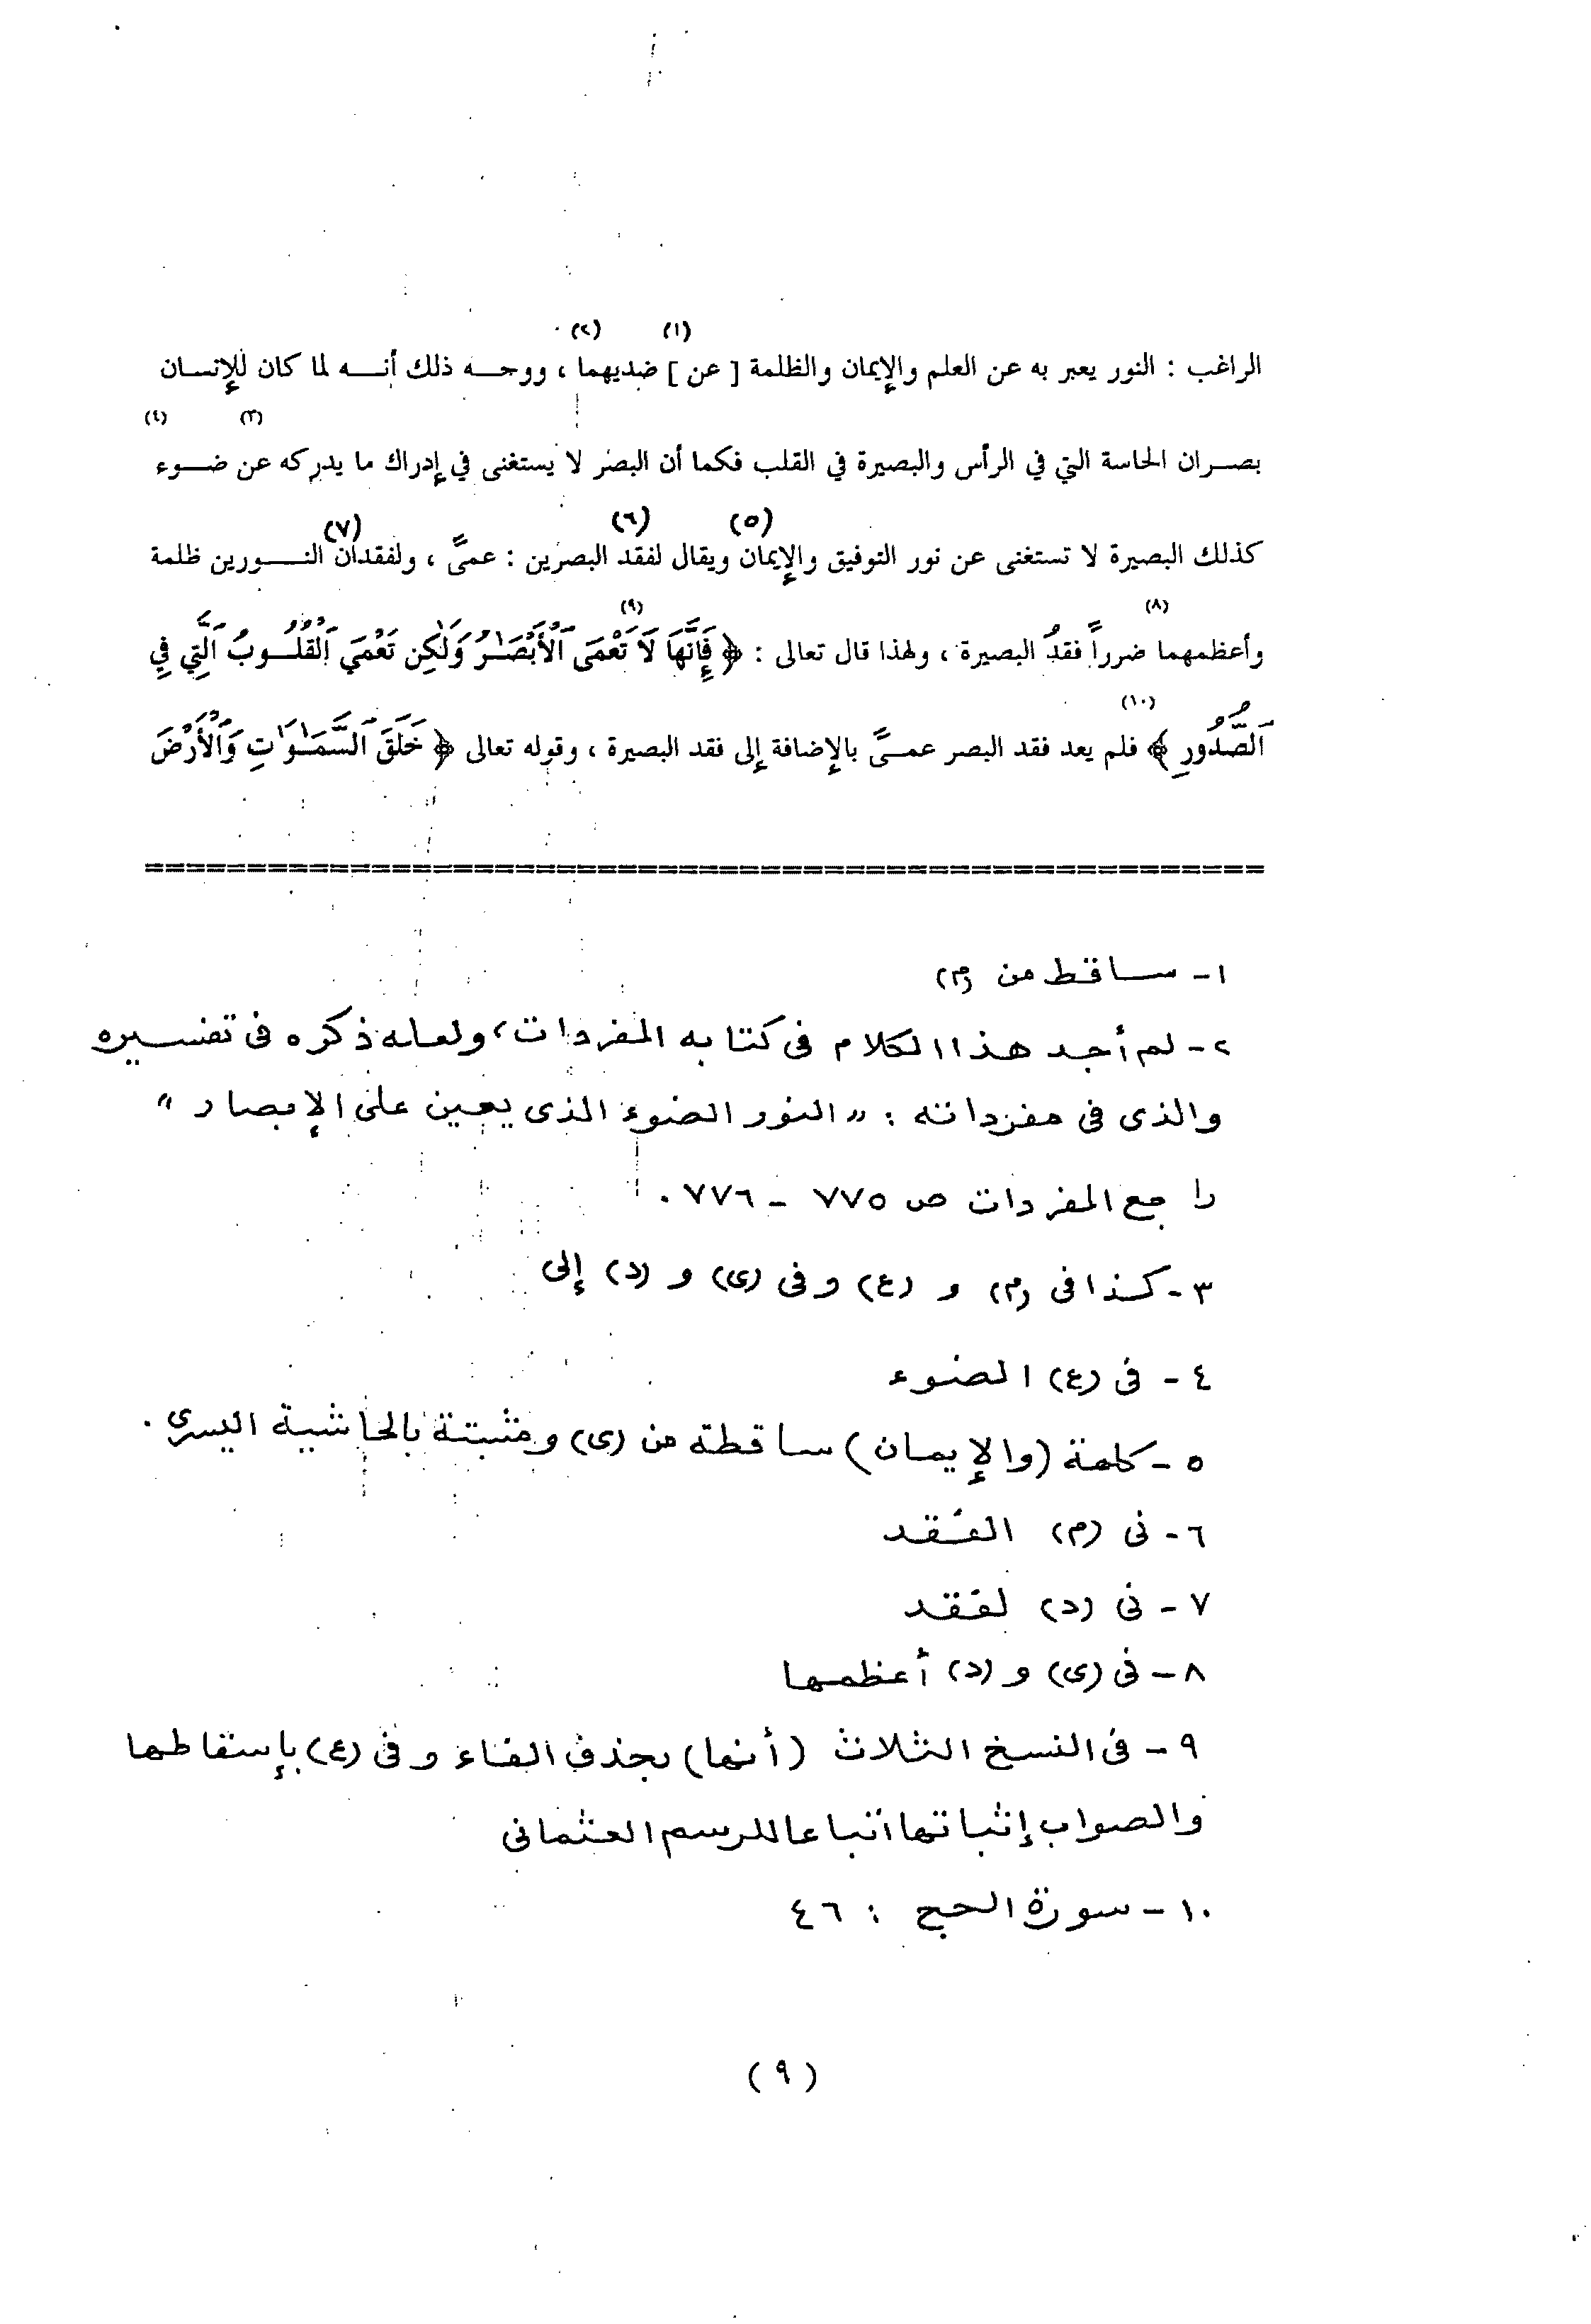 (١) (٢)
الراغب : النور يعبر به عن العلم والإيمان والظلمة [ عن ] ضديهما ، ووجـــه ذلك أنـــه لما كان للإنسان
(٣) (٤)
بصــران الحاسة التي في الرأس والبصيرة في القلب فكما أن البصر لا يستغنى في إدراك ما يدركه عن ضــوء
(٥) (٦) (٧)
كذلك البصيرة لا تستغنى عن نور التوفيق والإيمان ويقال لفقد البصرين : عمىً ، ولفقدان النـــورين ظلمة
(٨) (٩)
وأعظمهما ضرراً فقدُ البصيرة ، ولهذا قال تعالى : ﴿ فَإِنَّهَا لَا تَعْمَى ٱلْأَبْصَـٰرُ وَلَـٰكِن تَعْمَى ٱلْقُلُــوبُ ٱلَّتِي فِي
(١٠)
ٱلصُّدُورِ ﴾ فلم يعد فقد البصر عمــىً بالإضافة إلى فقد البصيرة ، وقوله تعالى ﴿ خَلَقَ ٱلسَّمَـٰوَٰتِ وَٱلْأَرْضَ
١- ساقط من (م)
٢- لم أجد هذا الكلام فى كتابه المفردات، ولعله ذكره فى تفسيره
والذى فى مفرداته : " النور الضوء الذى يعين على الإبصار "
راجع المفردات ص ٧٧٥ - ٧٧٦ .
٣- كذا فى (م) و (ع) وفى (ى) و (د) إلى
٤- فى (ع) الضوء
٥- كلمة (والإيمان) ساقطة من (ى) ومثبتة بالحاشية اليسرى .
٦- فى (م) الفقد
٧- فى (د) لفقد
٨- فى (ى) و (د) أعظمها
٩- فى النسخ الثلاث (أنها) بحذف الفاء وفى (ع) بإسقاطها
والصواب إثباتها اتباعا للرسم العثمانى
١٠- سورة الحج : ٤٦
(٩)